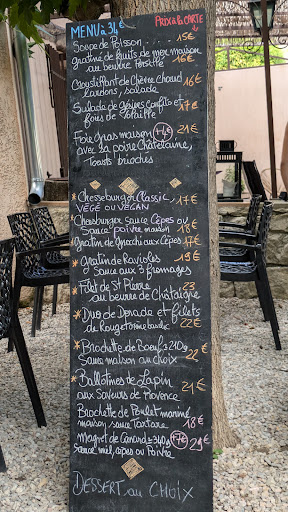 MENU à 34€ PRIX à la CARTE
Soupe de Poisson 15€
gratiné de fruits de mer maison 16€
au beurre persillé
Croustillant de Chèvre chaud 16€
lardons, salade
Salade de gésiers confits et 17€
foies de volaille
Foie gras maison +4€ 21€
avec la poire Châtelaine,
Toasts briochés
* Cheeseburger Classic, 17€
VÉGÉ OU VEGAN
* Cheeseburger sauce Cèpes ou
sauce poivre maison 18€
* Gratin de Gnocchi aux Cèpes 17€
* Gratin de Ravioles 19€
Sauce aux 3 fromages
* Filet de St Pierre 23
au beurre de Châtaigne
* Duo de Dorade et filets
de Rouget crème basilic 22€
* Brochette de Boeuf ≥210g
Sauce maison au choix 22
* Ballotines de Lapin 21€
aux saveurs de Provence
Brochette de Poulet mariné
maison sauce Tartare 18€
Magret de Canard ≥340g +7€ 29€
Sauce miel, cèpes ou Poivre
DESSERT au CHOIX